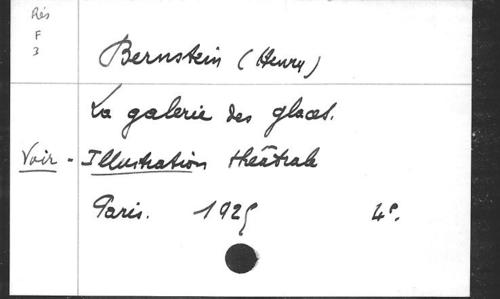 Rés
F
3
Bernstein (Henry)
La galerie des glaces.
Voir - Illustration théâtrale
Paris. 1925 4º.